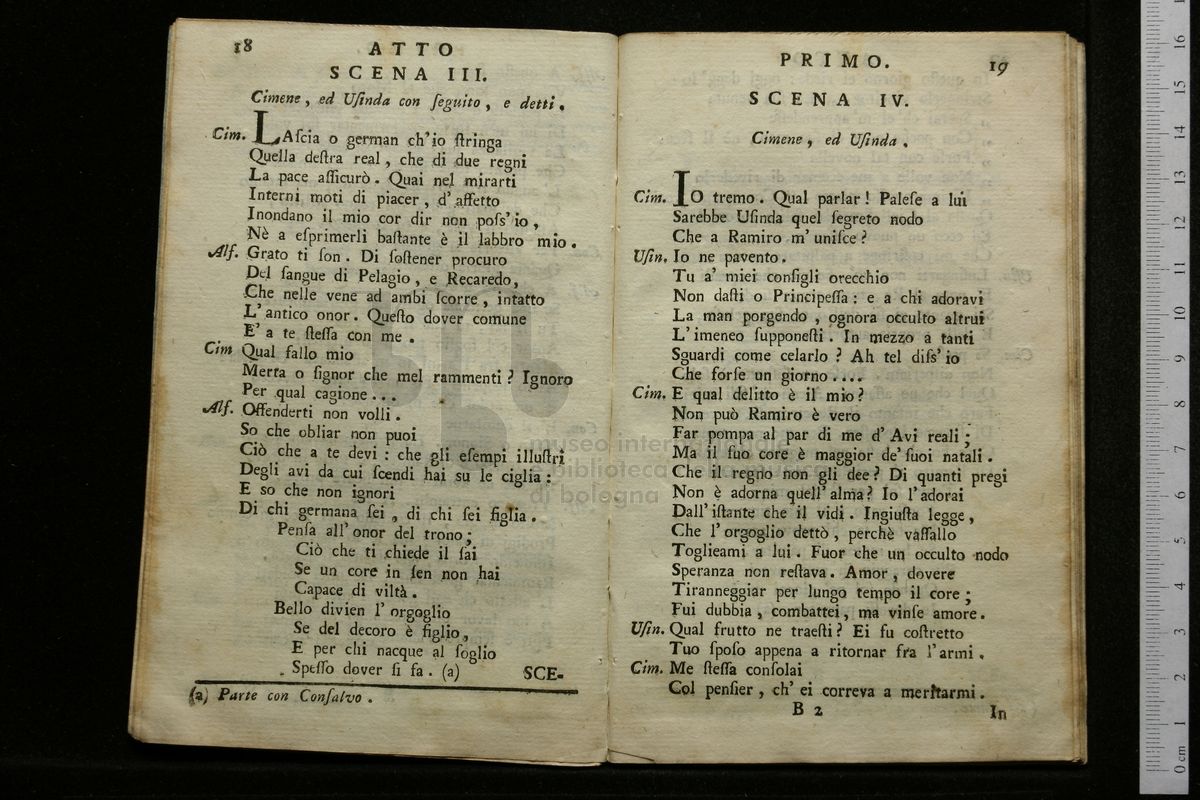 18 ATTO
SCENA III.
Cimene, ed Uſinda con ſeguito, e detti.
Cim. LAſcia o german ch'io ſtringa
Quella deſtra real, che di due regni
La pace aſſicurò. Quai nel mirarti
Interni moti di piacer, d'affetto
Inondano il mio cor dir non poſs'io,
Nè a eſprimerli baſtante è il labbro mio.
Alf. Grato ti ſon. Di ſoſtener procuro
Del ſangue di Pelagio, e Recaredo,
Che nelle vene ad ambi ſcorre, intatto
L'antico onor. Queſto dover comune
E' a te ſteſſa con me.
Cim Qual fallo mio
Merta o ſignor che mel rammenti? Ignoro
Per qual cagione...
Alf. Offenderti non volli.
So che obliar non puoi
Ciò che a te devi: che gli eſempi illuſtri
Degli avi da cui ſcendi hai su le ciglia:
E so che non ignori
Di chi germana ſei, di chi ſei figlia.
Penſa all'onor del trono;
Ciò che ti chiede il ſai
Se un core in ſen non hai
Capace di viltà.
Bello divien l'orgoglio
Se del decoro è figlio,
E per chi nacque al ſoglio
Speſſo dover ſi fa. (a) SCE-
(a) Parte con Conſalvo.
PRIMO. 19
SCENA IV.
Cimene, ed Uſinda.
Cim. IO tremo. Qual parlar! Paleſe a lui
Sarebbe Uſinda quel ſegreto nodo
Che a Ramiro m'uniſce?
Uſin. Io ne pavento.
Tu a' miei conſigli orecchio
Non daſti o Principeſſa: e a chi adoravi
La man porgendo, ognora occulto altrui
L'imeneo ſupponeſti. In mezzo a tanti
Sguardi come celarlo? Ah tel diſs'io
Che forſe un giorno....
Cim. E qual delitto è il mio?
Non può Ramiro è vero
Far pompa al par di me d'Avi reali;
Ma il ſuo core è maggior de' ſuoi natali.
Che il regno non gli dee? Di quanti pregi
Non è adorna quell'alma? Io l'adorai
Dall'iſtante che il vidi. Ingiuſta legge,
Che l'orgoglio dettò, perchè vaſſallo
Toglieami a lui. Fuor che un occulto nodo
Speranza non reſtava. Amor, dovere
Tiranneggiar per lungo tempo il core;
Fui dubbia, combattei, ma vinſe amore.
Uſin. Qual frutto ne traeſti? Ei fu coſtretto
Tuo ſpoſo appena a ritornar fra l'armi.
Cim. Me ſteſſa conſolai
Col penſier, ch'ei correva a meritarmi.
B 2 In
museo internazionale
e biblioteca della musica
di bologna
0 cm 1 2 3 4 5 6 7 8 9 10 11 12 13 14 15 16